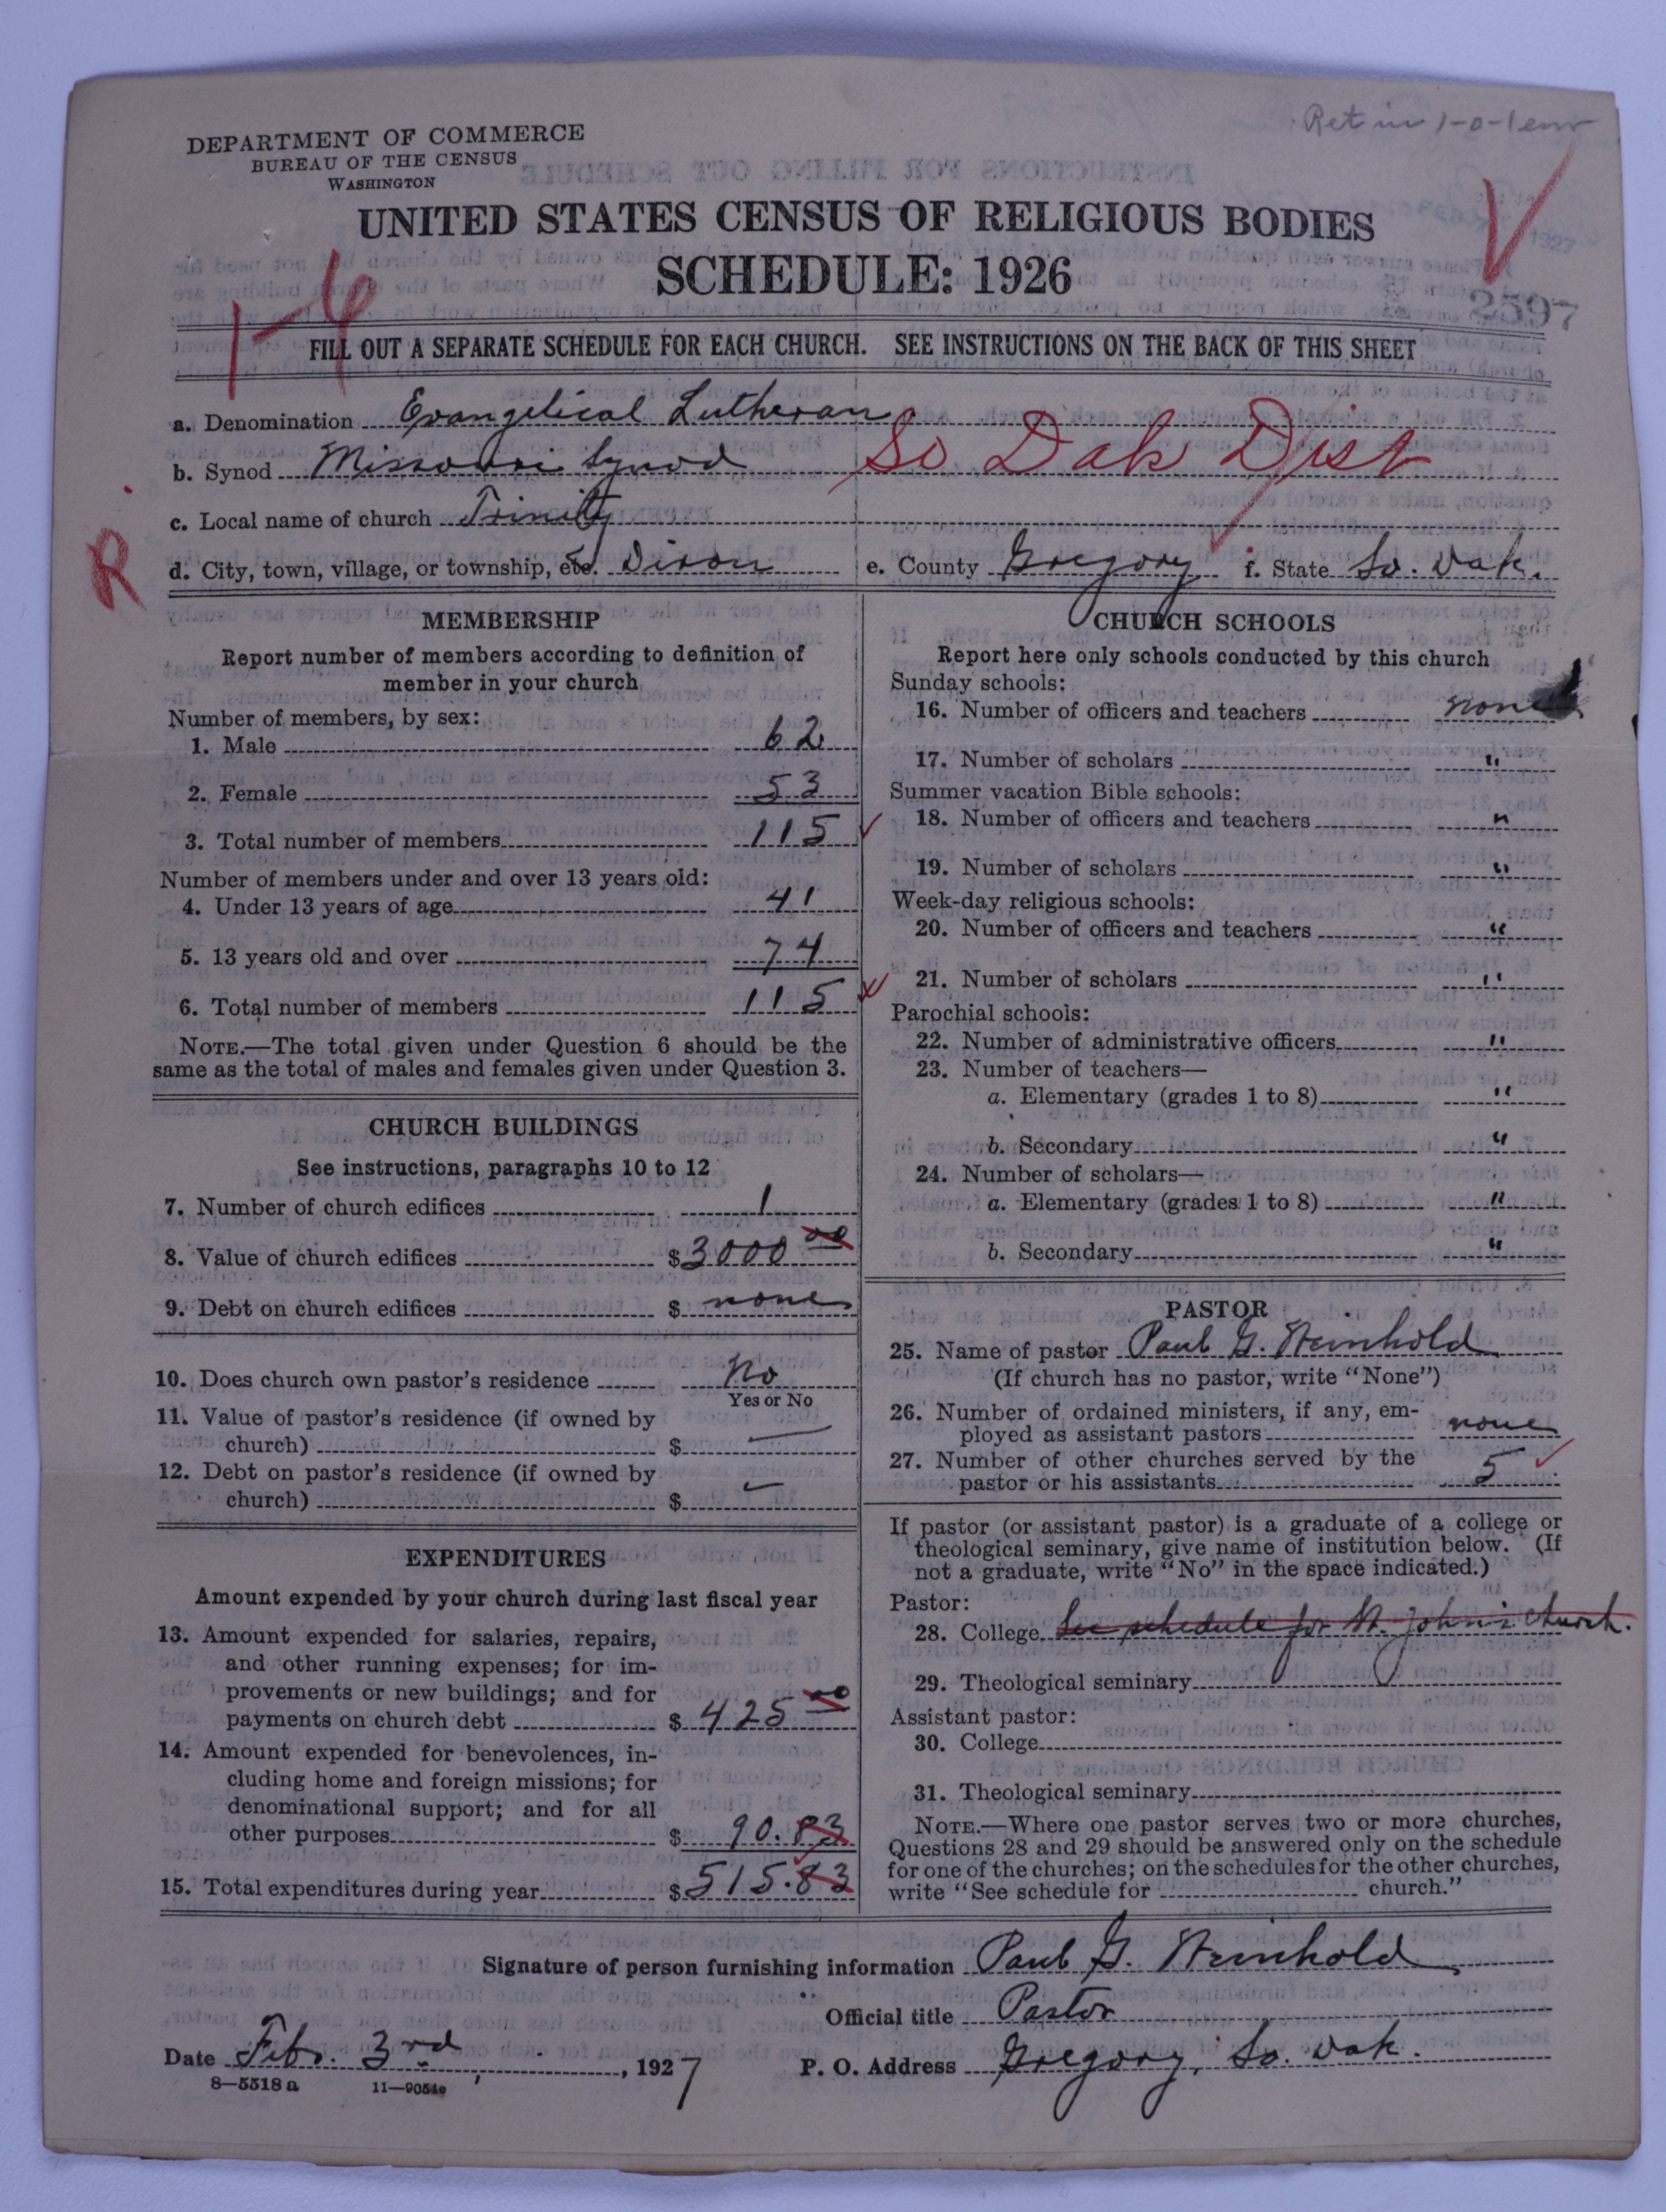 Ret in 1-0-1 env
DEPARTMENT OF COMMERCE
BUREAU OF THE CENSUS
WASHINGTON
UNITED STATES CENSUS OF RELIGIOUS BODIES
SCHEDULE: 1926
1927
2597
1-6
FILL OUT A SEPARATE SCHEDULE FOR EACH CHURCH. SEE INSTRUCTIONS ON THE BACK OF THIS SHEET
a. Denomination Evangelical Lutheran
b. Synod Missouri Synod So Dak Dist
c. Local name of church Trinity
R
d. City, town, village, or township, etc. Dixon e. County Gregory f. State So. Dak.
MEMBERSHIP
Report number of members according to definition of
member in your church
Number of members, by sex:
1. Male 62
2. Female 53
3. Total number of members 115
Number of members under and over 13 years old:
4. Under 13 years of age 41
5. 13 years old and over 74
6. Total number of members 115
NOTE.—The total given under Question 6 should be the
same as the total of males and females given under Question 3.
CHURCH BUILDINGS
See instructions, paragraphs 10 to 12
7. Number of church edifices 1
8. Value of church edifices $3000 00
9. Debt on church edifices $ none
10. Does church own pastor's residence No
Yes or No
11. Value of pastor's residence (if owned by
church) $ —
12. Debt on pastor's residence (if owned by
church) $ —
EXPENDITURES
Amount expended by your church during last fiscal year
13. Amount expended for salaries, repairs,
and other running expenses; for im-
provements or new buildings; and for
payments on church debt $ 425 00
14. Amount expended for benevolences, in-
cluding home and foreign missions; for
denominational support; and for all
other purposes $ 90.83
15. Total expenditures during year $515.83
CHURCH SCHOOLS
Report here only schools conducted by this church
Sunday schools:
16. Number of officers and teachers none
17. Number of scholars "
Summer vacation Bible schools:
18. Number of officers and teachers "
19. Number of scholars "
Week-day religious schools:
20. Number of officers and teachers "
21. Number of scholars "
Parochial schools:
22. Number of administrative officers "
23. Number of teachers—
a. Elementary (grades 1 to 8) "
b. Secondary "
24. Number of scholars—
a. Elementary (grades 1 to 8) "
b. Secondary "
PASTOR
25. Name of pastor Paul G. Steinhold
(If church has no pastor, write "None")
26. Number of ordained ministers, if any, em-
ployed as assistant pastors none
27. Number of other churches served by the
pastor or his assistants 5
If pastor (or assistant pastor) is a graduate of a college or
theological seminary, give name of institution below. (If
not a graduate, write "No" in the space indicated.)
Pastor:
28. College See schedule for St. John's church.
29. Theological seminary
Assistant pastor:
30. College
31. Theological seminary
NOTE.—Where one pastor serves two or more churches,
Questions 28 and 29 should be answered only on the schedule
for one of the churches; on the schedules for the other churches,
write "See schedule for church."
Signature of person furnishing information Paul G. Steinhold
Official title Pastor
Date Feb. 3rd, 1927 P. O. Address Gregory, So. Dak.
8—5518 a 11—9051